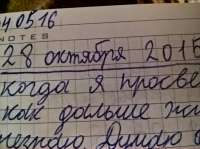 40516
NOTES
28 октября 2015
когда я просве
как дальше жи
незнаю. Думаю